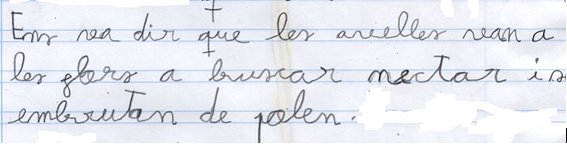 Ens va dir que les avelles van a
les flors a buscar nectar i s
embrutan de polen.